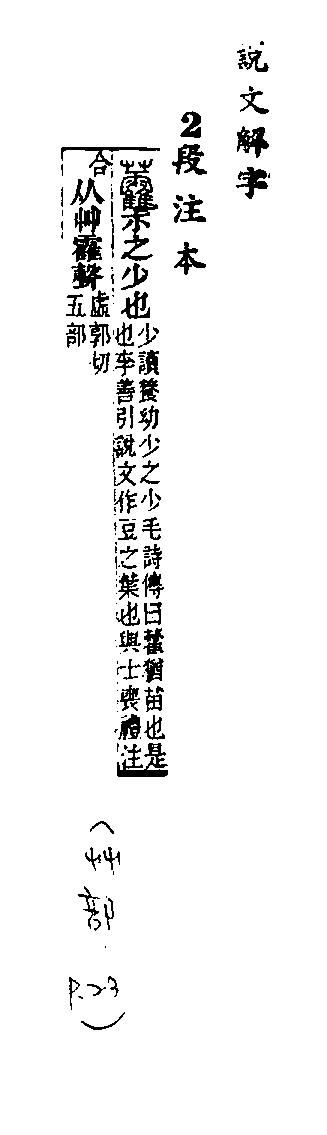 說文解字
2段注本
尗之少也少讀養幼少之少毛詩傳曰藿猶苗也是
也李善引說文作豆之葉也與士喪禮注
合从艸靃聲虛郭切
五部
(艸部 P.23)